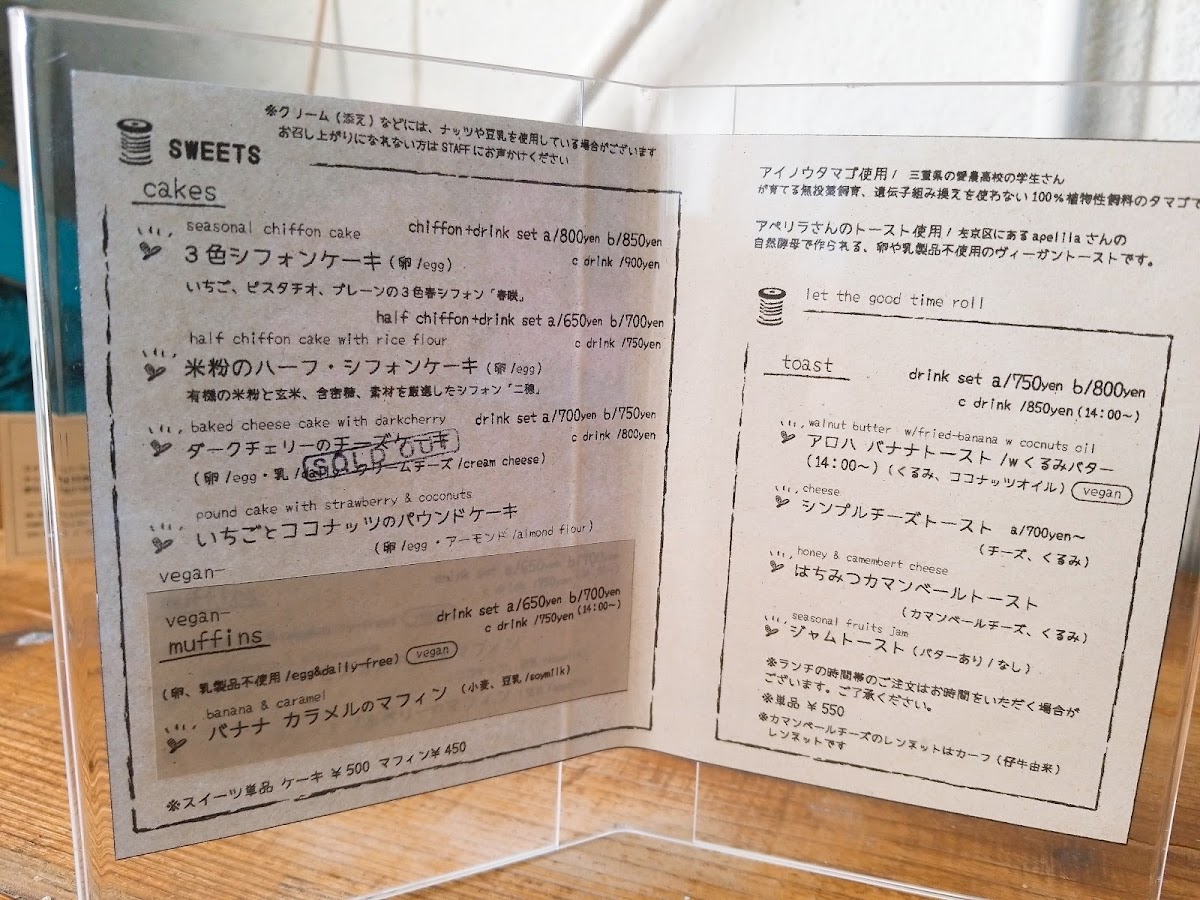 ※クリーム（添え）などには、ナッツや豆乳を使用している場合がございます
お召し上がりになれない方は STAFF にお声かけください
SWEETS
cakes
seasonal chiffon cake
chiffon+drink set a/800yen b/850yen
３色シフォンケーキ（卵/egg）
c drink /900yen
いちご、ピスタチオ、プレーンの３色春シフォン「春咲」
half chiffon+drink set a/650yen b/700yen
half chiffon cake with rice flour
c drink /750yen
米粉のハーフ・シフォンケーキ（卵/egg）
有機の米粉と玄米、含蜜糖、素材を厳選したシフォン「二穂」
baked cheese cake with darkcherry
drink set a/700yen b/750yen
ダークチェリーのチーズケーキ
c drink /800yen
SOLD OUT
（卵/egg・乳/クリームチーズ/cream cheese）
pound cake with strawberry & coconuts
いちごとココナッツのパウンドケーキ
（卵/egg・アーモンド/almond flour）
vegan—
vegan—
muffins
drink set a/650yen b/700yen
c drink /750yen (14:00〜)
（卵、乳製品不使用/egg&daily-free） vegan
banana & caramel
バナナ カラメルのマフィン（小麦、豆乳/soymilk）
※スイーツ単品 ケーキ ￥500 マフィン￥450
アイノウタマゴ使用！ 三重県の愛農高校の学生さん
が育てる無投薬飼育、遺伝子組み換えを使わない100%植物性飼料のタマゴで
アペリラさんのトースト使用！左京区にあるapelilaさんの
自然酵母で作られる、卵や乳製品不使用のヴィーガントーストです。
let the good time roll
toast
drink set a/750yen b/800yen
c drink /850yen (14:00〜)
walnut butter w/fried-banana w cocnuts oil
アロハ バナナトースト/wくるみバター
(14:00〜)（くるみ、ココナッツオイル） vegan
cheese
シンプルチーズトースト a/700yen〜
（チーズ、くるみ）
honey & camembert cheese
はちみつカマンベールトースト
（カマンベールチーズ、くるみ）
seasonal fruits jam
ジャムトースト（バターあり/なし）
※ランチの時間帯のご注文はお時間をいただく場合が
ございます。ご了承ください。
※単品 ￥550
※カマンベールチーズのレンネットはカーフ（仔牛由来）
レンネットです